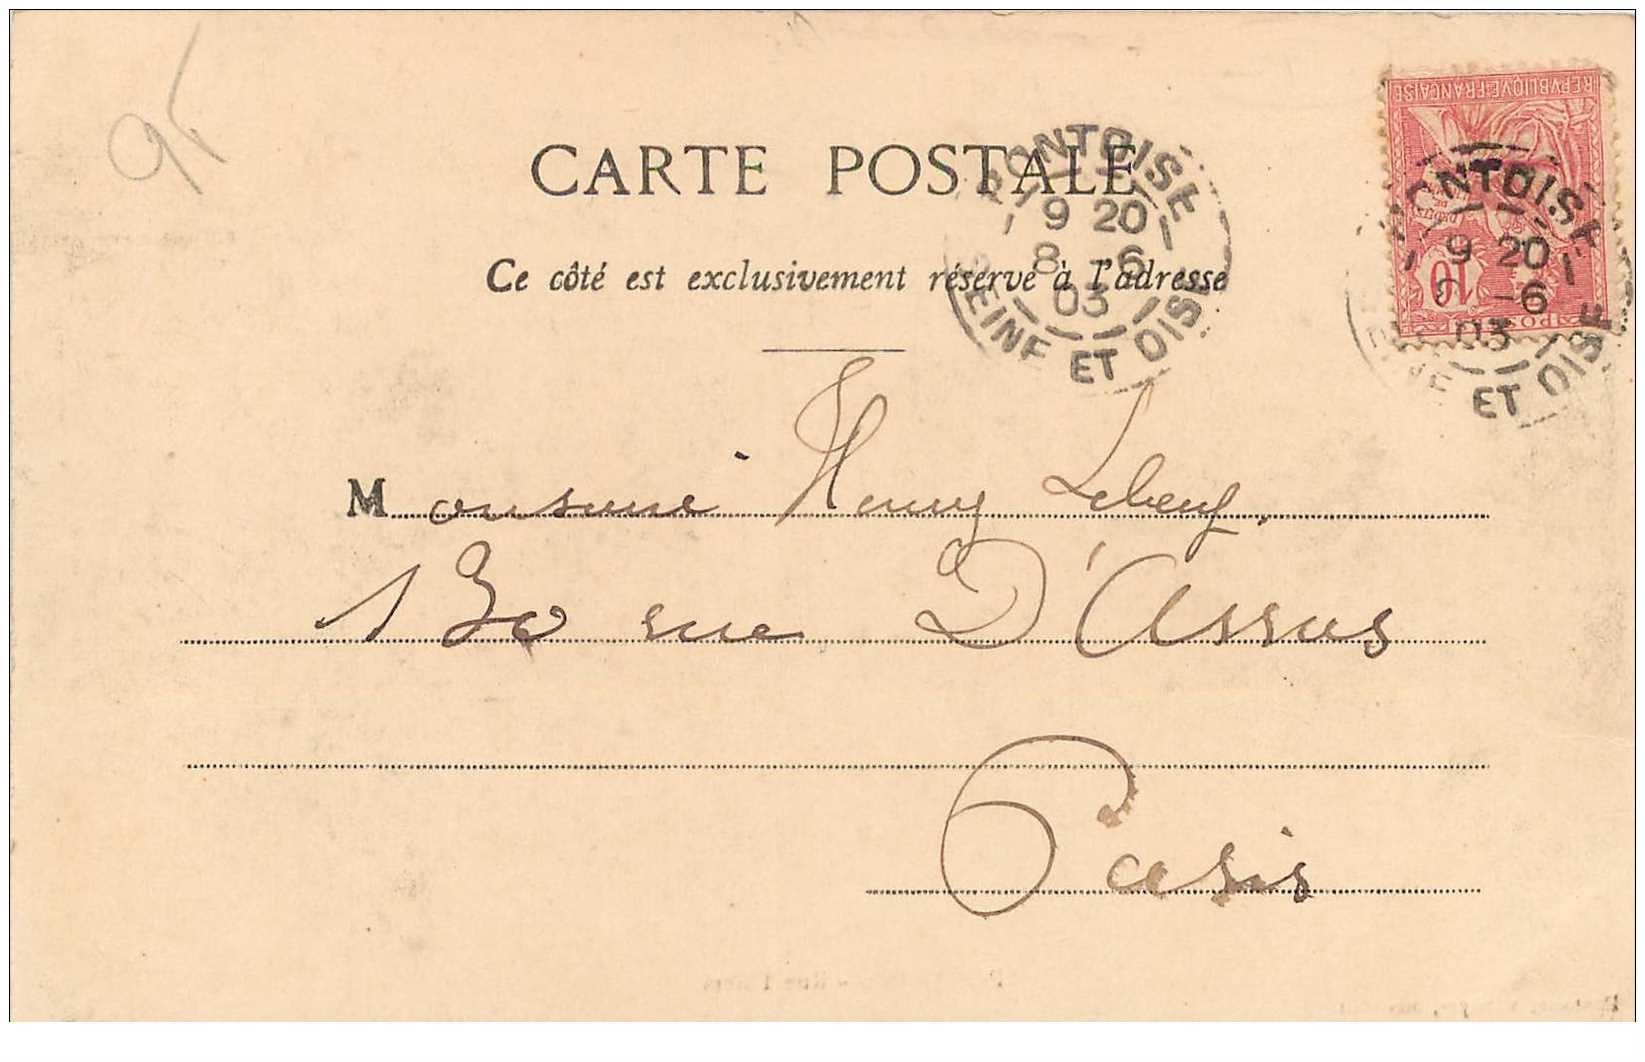 95
CARTE POSTALE
Ce côté est exclusivement réservé à l'adresse
PONTOISE
9 20
8 -6
03
SEINE ET OISE
REPVBLIQVE FRANÇAISE
10
POSTES
PONTOISE
9 20
-6
03
SEINE ET OISE
Monsieur Henry Lebeuf.
130 rue D'Assas
Paris